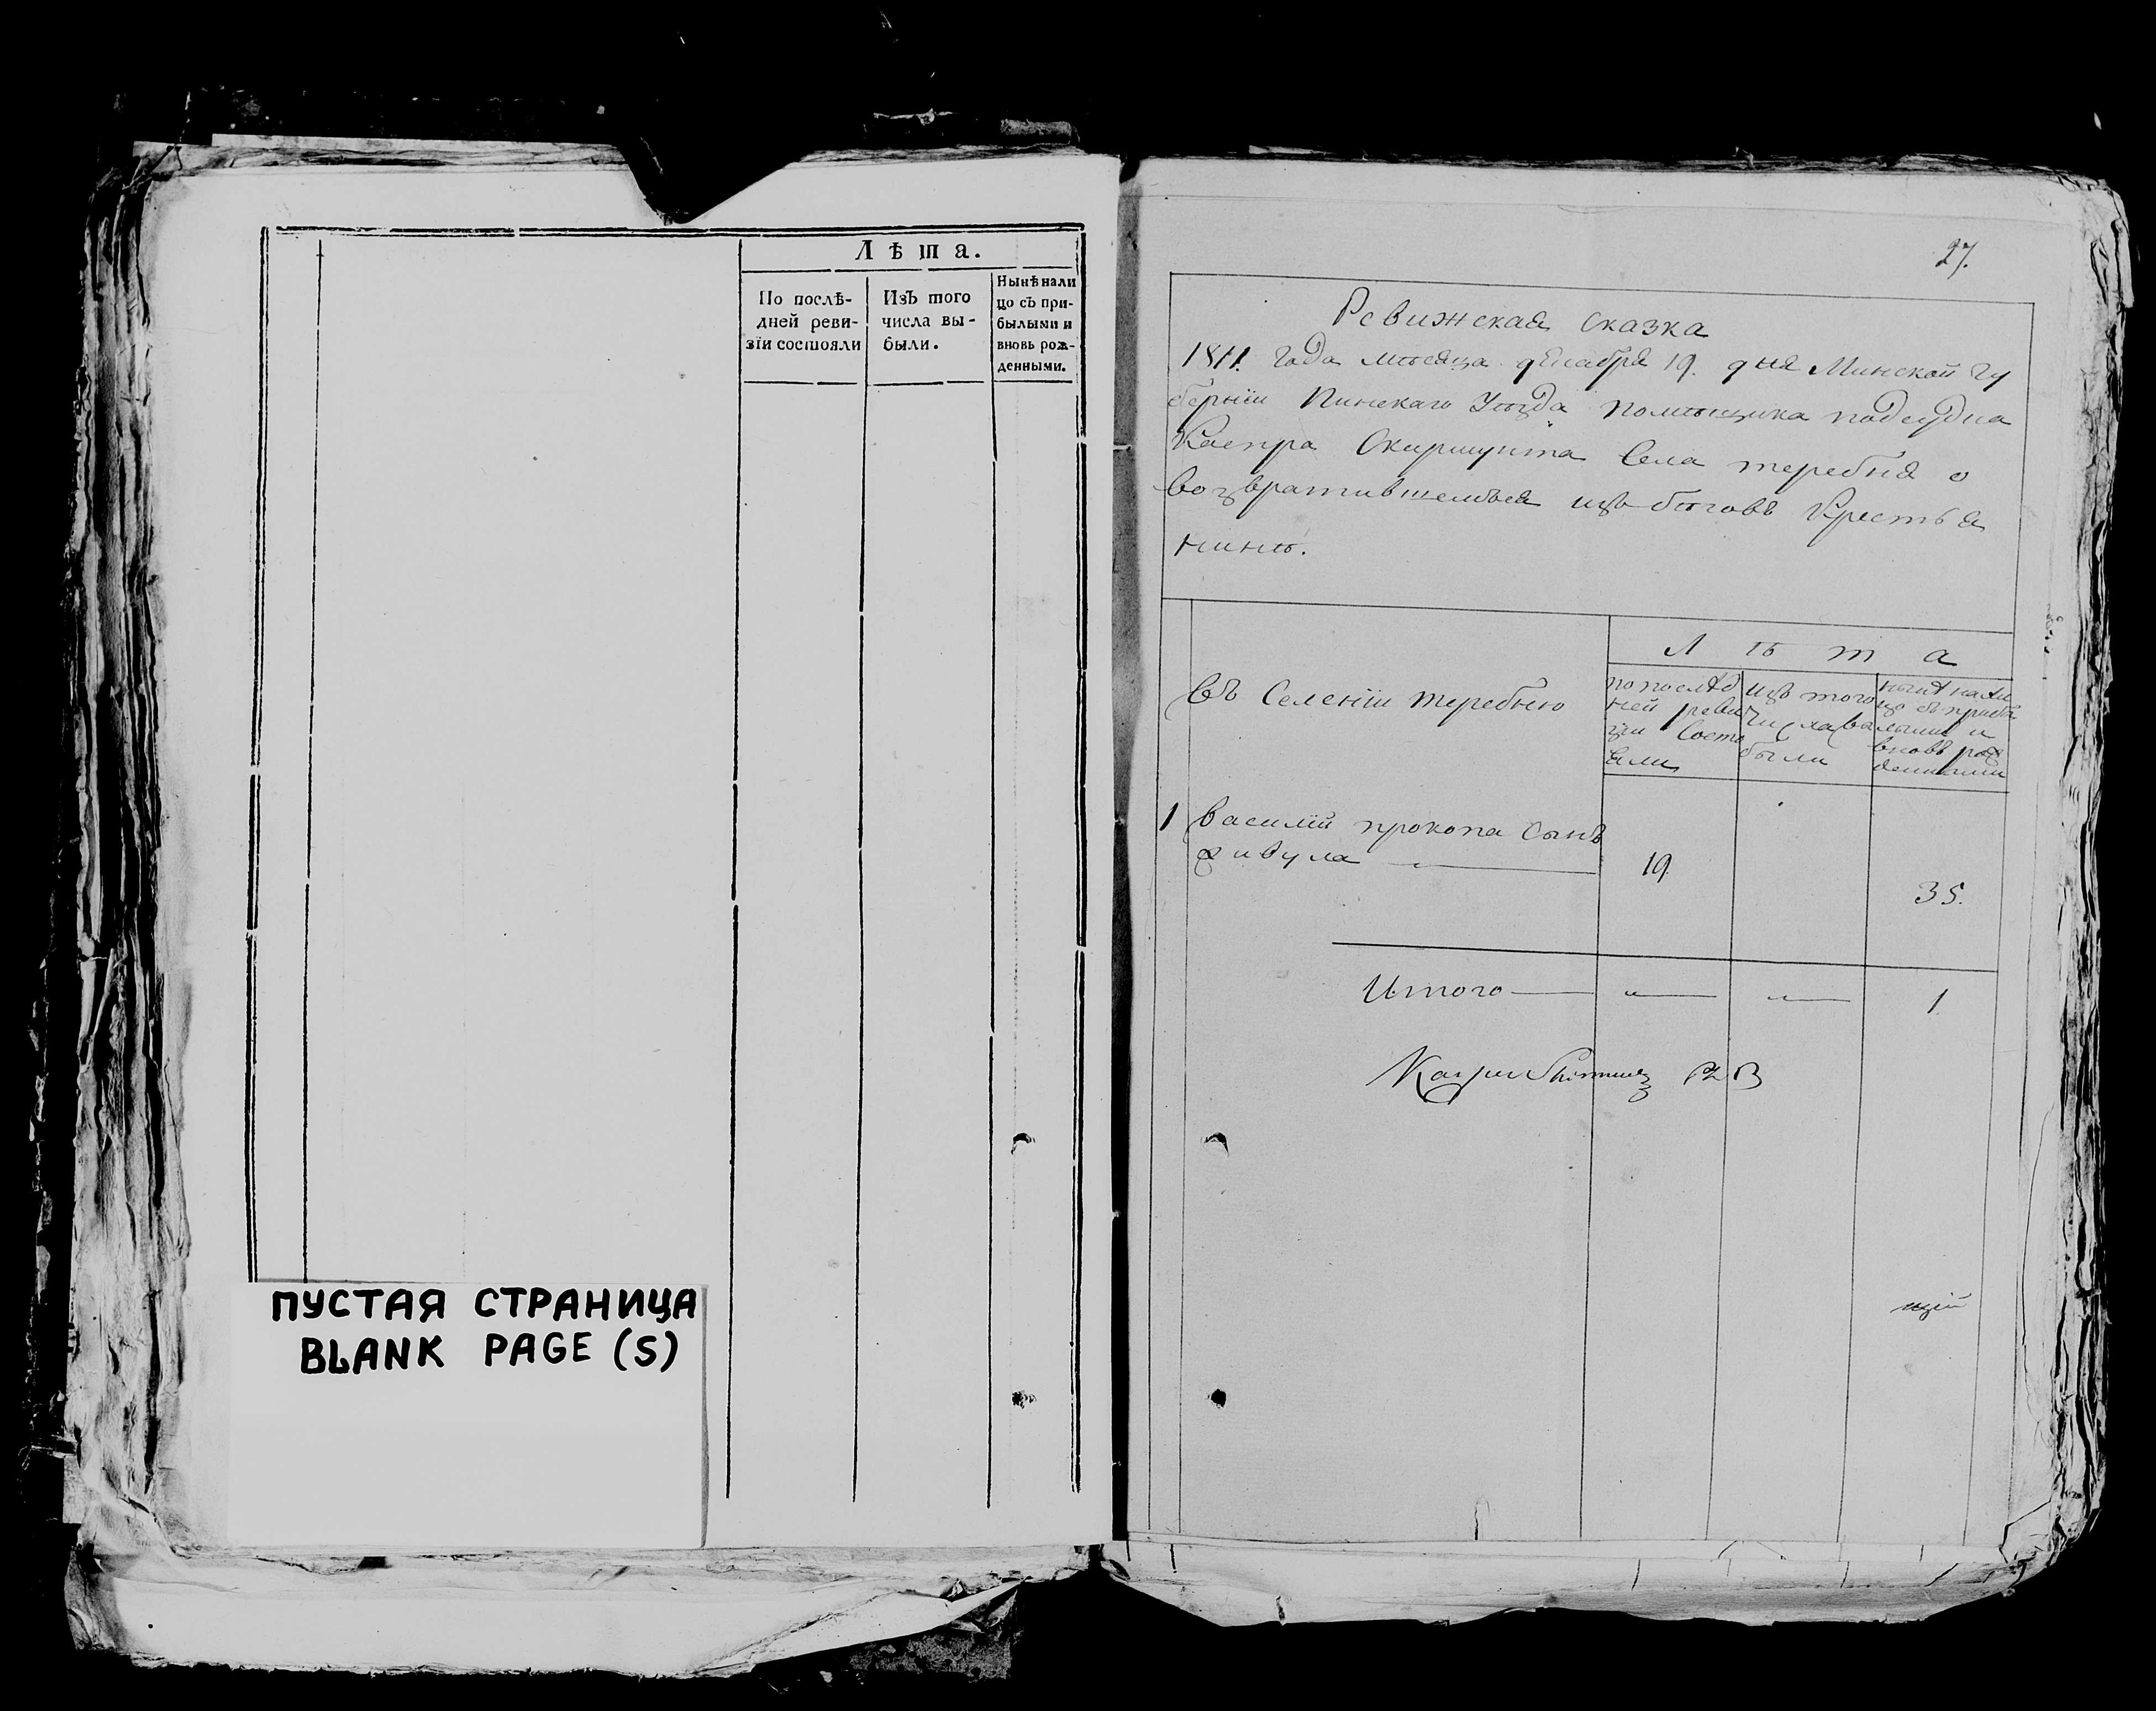 Лѣта.
По послѣ-
дней реви-
зіи состояли
Изъ того
числа вы-
были.
Нынѣ нали
цо съ при-
былыми и
вновь рож-
денными.
ПУСТАЯ СТРАНИЦА
BLANK PAGE (S)
27.
Ревижская сказка
1811. года мѣсяца декабря 19. дня Минской гу
берніи Пинскаго Уѣзда помѣщика подсудка
Каспра Скирмунта Села теребня о
возвратившемъся изъ бѣговъ Крестья
нинѣ.
Лѣта
Въ Селеніи теребню
по послѣд
ней реви
зіи Состо
яли
изъ того
числа вы
были
нынѣ нали
цо съ прибы
лыми и
вновь рож
денными
1 василій прокопа Сынъ
живула
19
35.
Итого 1